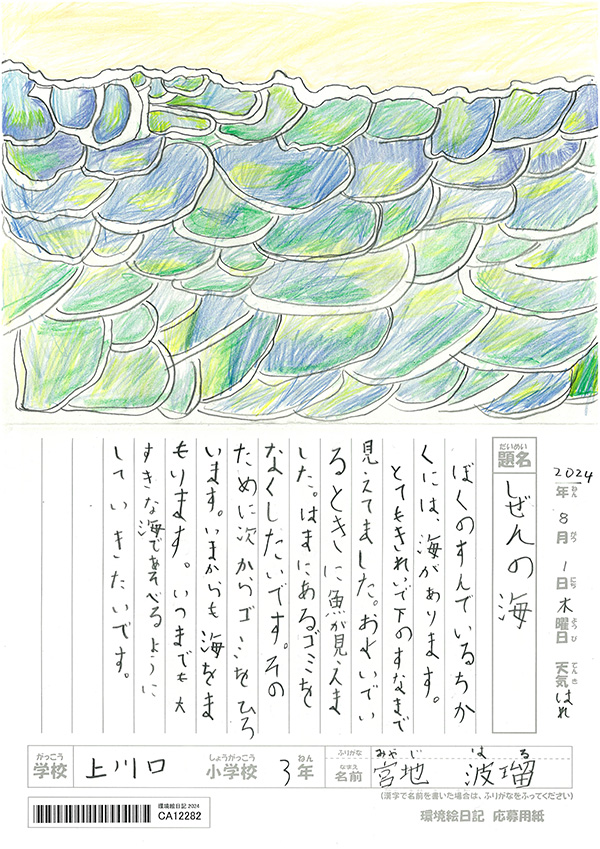 2024年8月1日木曜日 天気はれ
ねん がつ にち ようび てんき
だいめい
題名
しぜんの海
ぼくのすんでいるちか
くには、海があります。
とてもきれいで下のすなまで
見えてました。およいでい
るときに魚が見えま
した。はまにあるゴミを
なくしたいです。その
ために次からゴミをひろ
います。いまからも海をま
もります。いつまでも大
すきな海であそべるように
していきたいです。
がっこう
学校
上川口
しょうがっこう
小学校
3
ねん
年
ふりがな
みやじ はる
なまえ
名前
宮地 波瑠
(漢字で名前を書いた場合は、ふりがなをふってください)
環境絵日記 2024
CA12282
環境絵日記 応募用紙